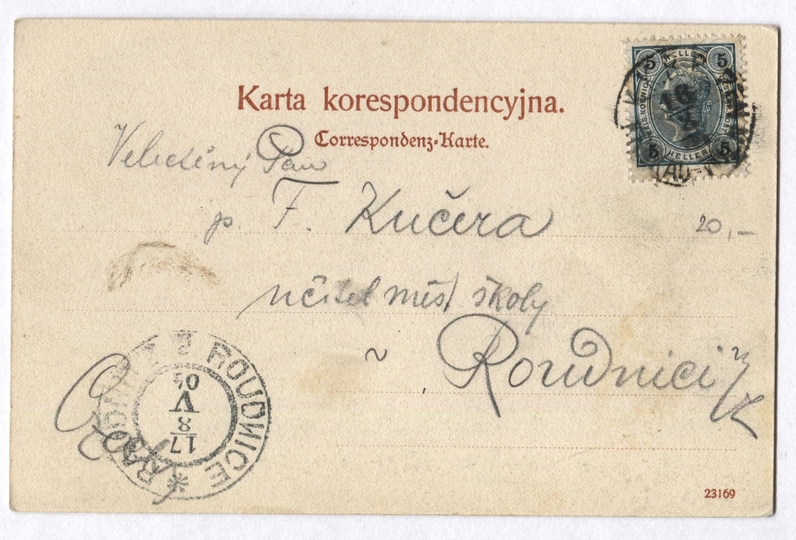 Karta korespondencyjna.
Correspondenz-Karte.
5 HELLER 5
5 HELLER 5
16
Veletěný Pan
p. F. Kučera
20,—
učitel měst školy
v Roudnici n/L
ROUDNICE
17
8
V
04
23169